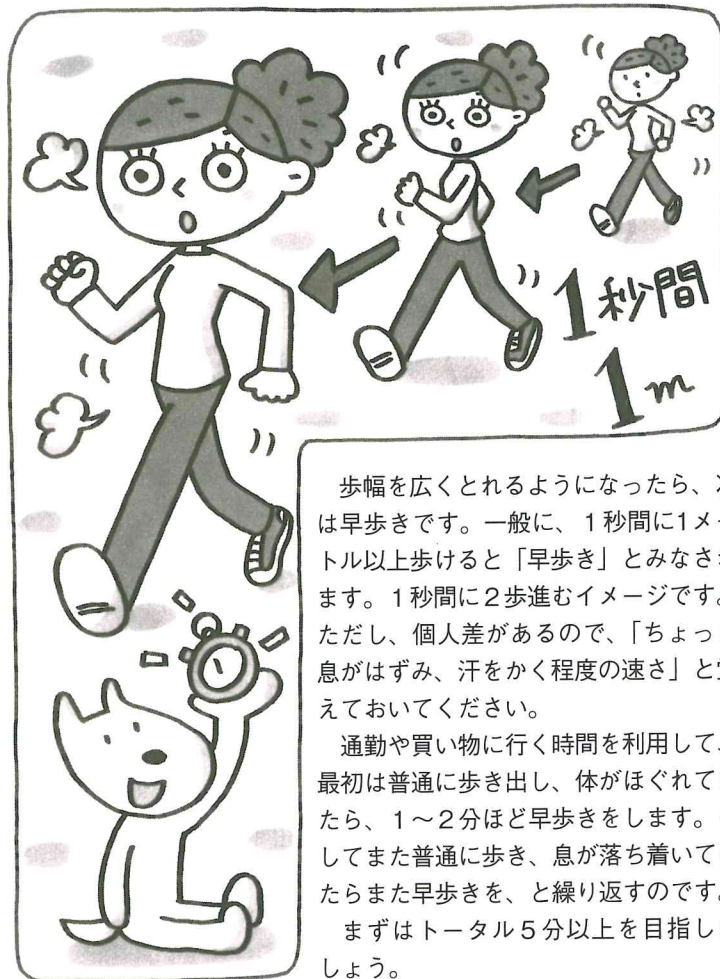 1秒間
1m
歩幅を広くとれるようになったら、
は早歩きです。一般に、1秒間に1メ
トル以上歩けると「早歩き」とみなさ
ます。1秒間に2歩進むイメージです。
ただし、個人差があるので、「ちょっ
息がはずみ、汗をかく程度の速さ」と
えておいてください。
通勤や買い物に行く時間を利用して、
最初は普通に歩き出し、体がほぐれて
たら、1〜2分ほど早歩きをします。
してまた普通に歩き、息が落ち着いて
たらまた早歩きを、と繰り返すのです。
まずはトータル5分以上を目指し
しょう。